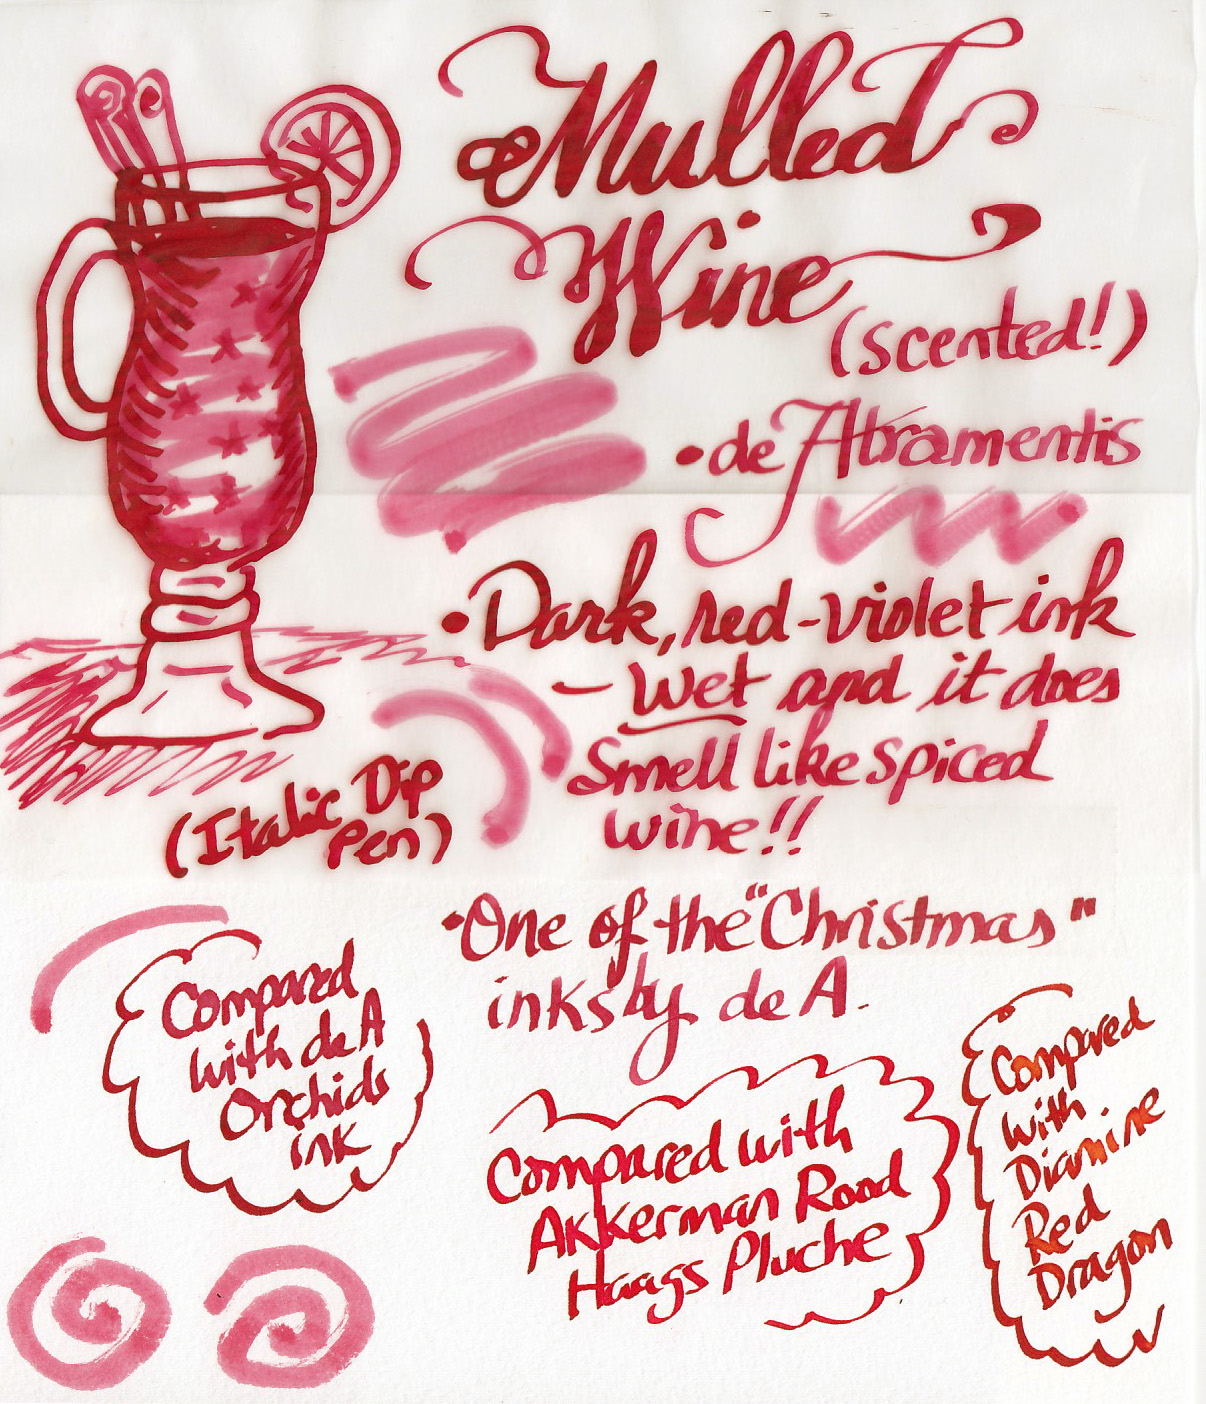 Mulled
Wine
(scented!)
• de Atramentis
• Dark, red-violet ink
– Wet and it does
smell like spiced
wine!!
(Italic Dip
Pen)
• One of the "Christmas"
inks by de A.
Compared
with de A
Orchids
ink
Compared with
Akkerman Rood
Haags Pluche
Compared
with
Diamine
Red
Dragon